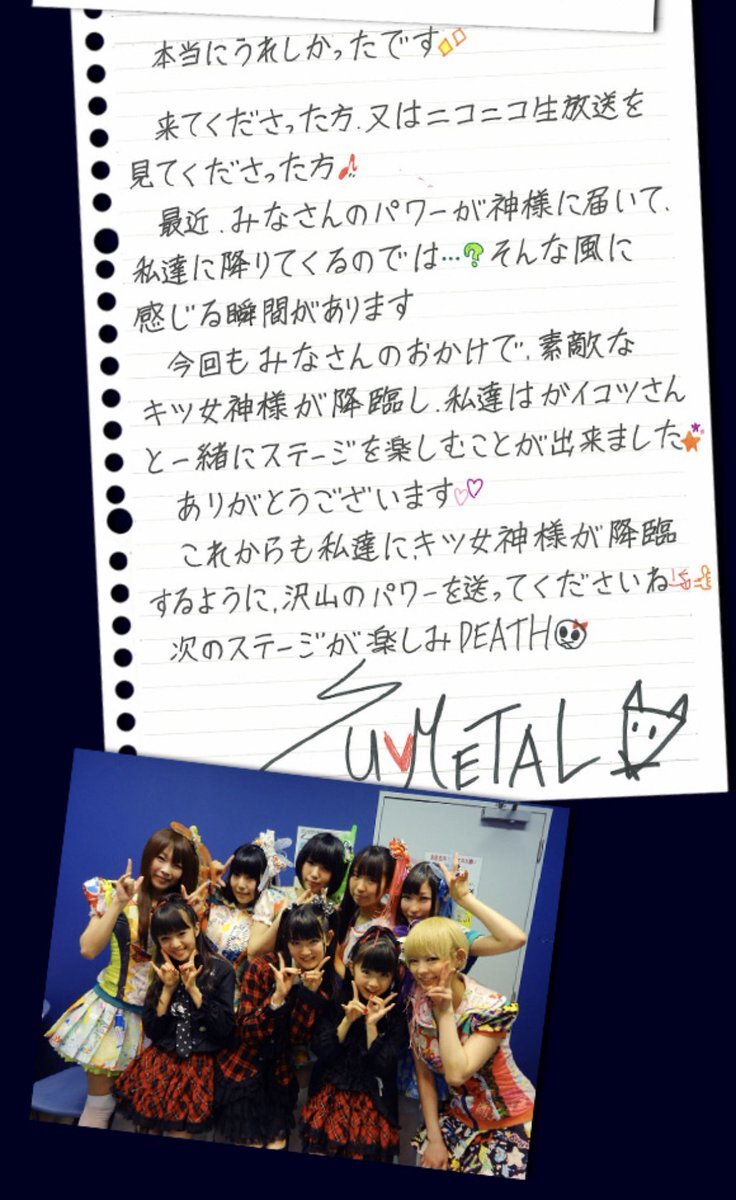 本当にうれしかったです
来てくださった方、又はニコニコ生放送を
見てくださった方
最近、みなさんのパワーが神様に届いて、
私達に降りてくるのでは…?そんな風に
感じる瞬間があります
今回もみなさんのおかげで、素敵な
キツ女神様が降臨し、私達はガイコツさん
と一緒にステージを楽しむことが出来ました
ありがとうございます
これからも私達に、キツ女神様が降臨
するように、沢山のパワーを送ってくださいね
次のステージが楽しみDEATH
SU METAL